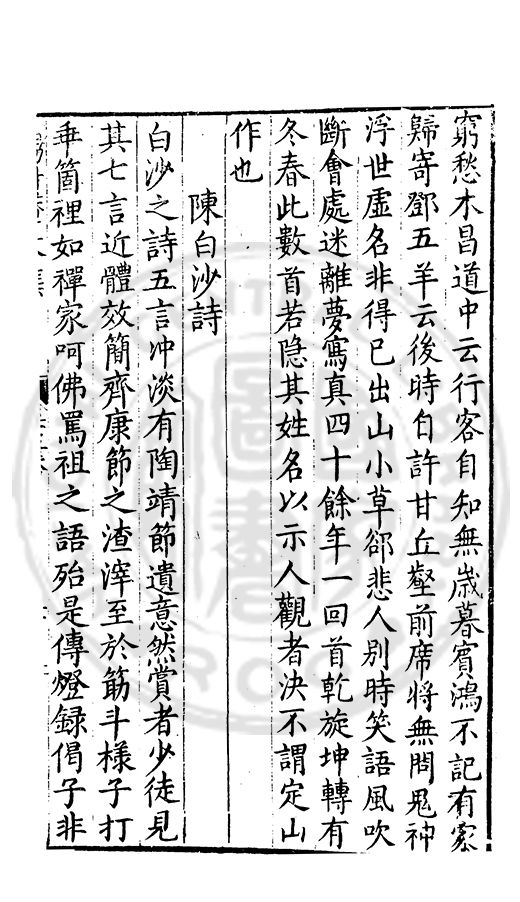 窮愁木昌道中云行客自知無歳暮賓鴻不記有家
歸寄鄧五羊云後時自許甘丘壑前席將無問鬼神
浮世虛名非得已出山小草郤悲人別時笑語風吹
斷會處迷離夢寫真四十餘年一回首乾旋坤轉有
冬春此數首若隐其姓名以示人觀者决不謂定山
作也
陳白沙詩
白沙之詩五言冲淡有陶靖節遺意然賞者少徒見
其七言近體效簡齊康節之渣滓至於筋斗様子打
乖箇裡如禪家呵佛罵祖之語殆是傳燈録偈子非